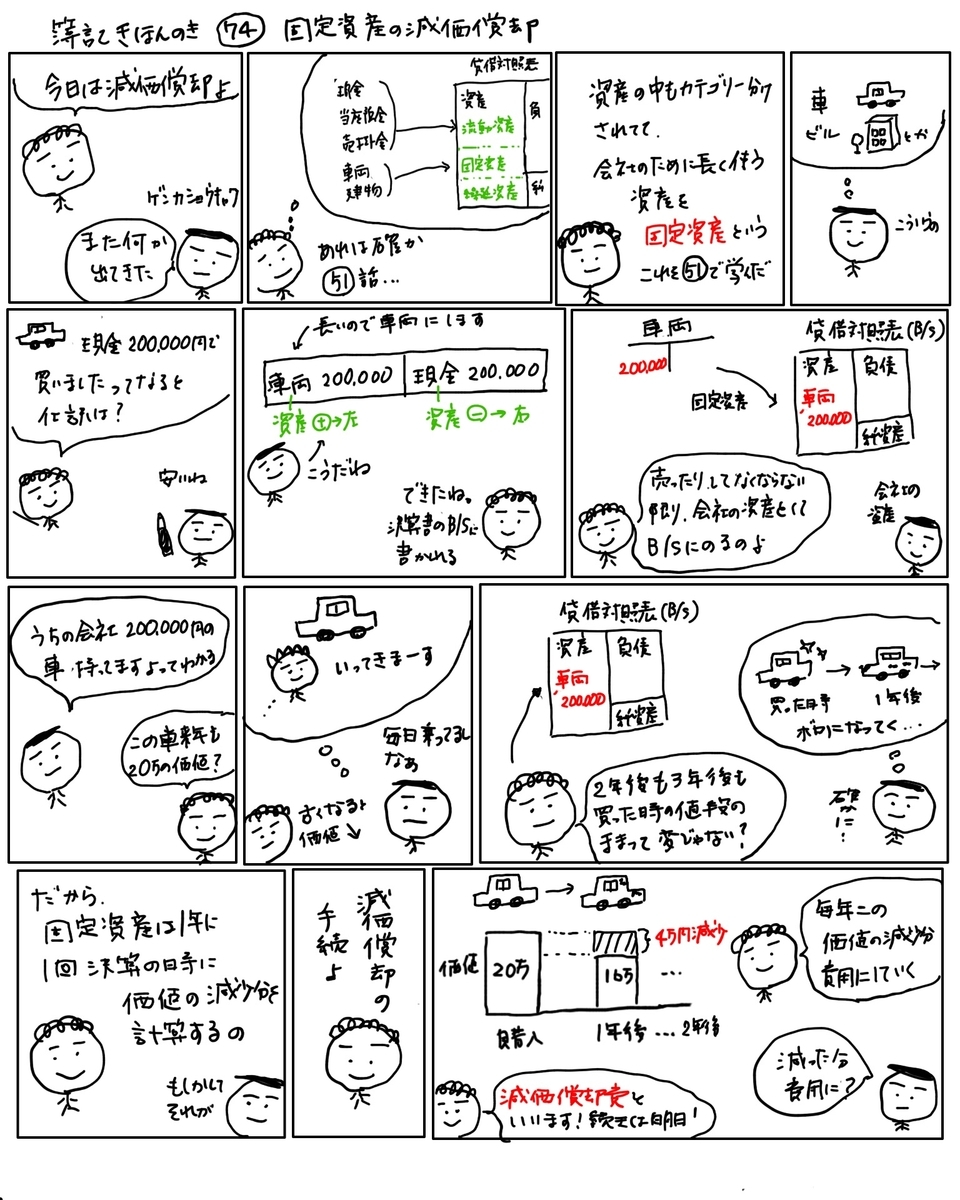 簿記きほんのき 74 固定資産の減価償却
今日は減価償却よ
ゲンカショウキャク
また何か
出てきた
現金
当座預金
売掛金
車両
建物
貸借対照表
資産
流動資産
固定資産
繰延資産
負
純
あれは確か
51話...
資産の中もカテゴリー分け
されてて、
会社のために長く使う
資産を
固定資産という
これを51で学んだ
車
ビル
とか
こういうの
現金200,000円で
買いましたってなると
仕訳は?
安いね
長いので車両にします
車両 200,000
現金 200,000
資産+→左
資産-→右
こうだね
できたね。
決算書のB/Sに
書かれる
車両
200,000
固定資産
貸借対照表(B/S)
資産
負債
車両
200,000
純資産
売ったりしてなくならない
限り、会社の資産として
B/Sにのるのよ
会社の
資産
うちの会社200,000円の
車持ってますよってわかる
この車来年も
20万の価値?
いってきまーす
毎日乗ってるし
なぁ
古くなると
価値↓
貸借対照表(B/S)
資産
負債
車両
200,000
純資産
買った時
1年後
ボロになってく...
2年後も3年後も
買った時の値段の
ままって変じゃない?
確
か
に!
だから、
固定資産は1年に
1回決算の時に
価値の減少分を
計算するの
もしかして
それが
減価償却の
手続よ
価値
20万
16万
4万円減少
...
購入
1年後...2年後
毎年この
価値の減少分
費用にしていく
減った分
費用に?
減価償却費と
いいます!続きは明日!